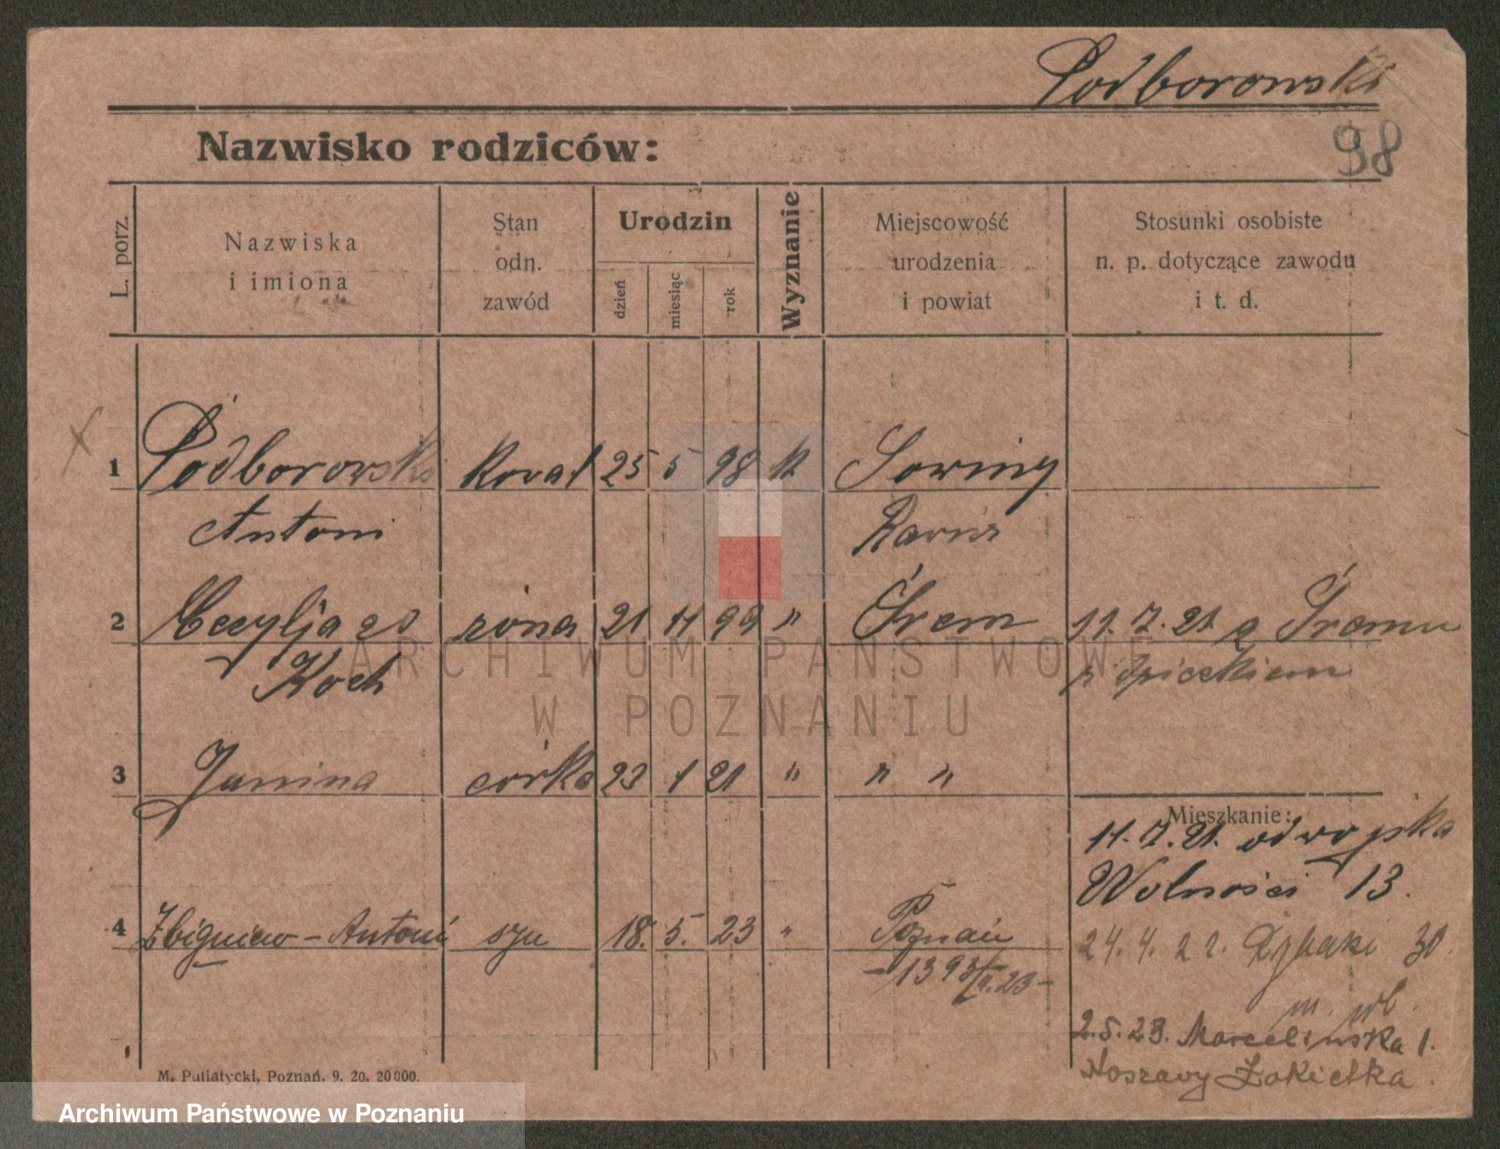 Podborowski
98
Nazwisko rodziców:
L. porz.
Nazwiska
i imiona
Stan
odn.
zawód
Urodzin
dzień
miesiąc
rok
Wyznanie
Miejscowość
urodzenia
i powiat
Stosunki osobiste
n. p. dotyczące zawodu
i t. d.
1 Podborowski kowal 25 5 98 k Sowiny
Antoni
2 Cecylja zd żona 21 11 99 " Śrem 11.7.21 z Śremu
Koch
3 Janina córka 23 1 21 " " "
Mieszkanie:
11.7.21. od wojska
Wolności 13.
4 Zbigniew-Antoni syn 18. 5. 23 " Poznań
24.4.22. 30
2.5.23. Marcelińska 1.
Koszary
M. Putiatycki, Poznań. 9. 20. 20000.
ARCHIWUM PAŃSTWOWE
W POZNANIU
Archiwum Państwowe w Poznaniu